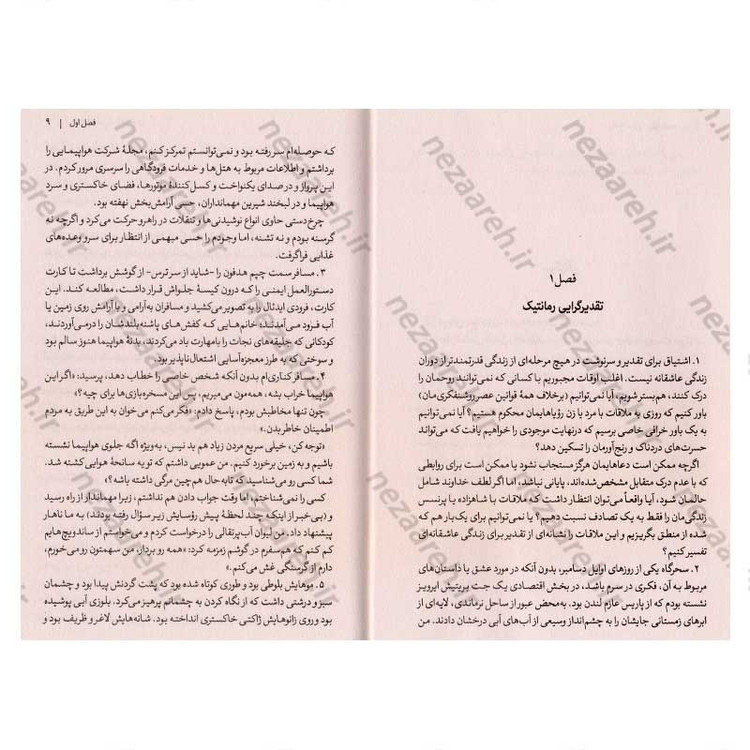 فصل ۱
تقدیرگرایی رمانتیک
۱. اشتیاق برای تقدیر و سرنوشت در هیچ مرحله‌ای از زندگی قدرتمندتر از دوران
زندگی عاشقانه نیست. اغلب اوقات مجبوریم با کسانی که نمی‌توانند روحمان را
درک کنند، هم‌بستر شویم. آیا نمی‌توانیم (برخلاف همهٔ قوانین عصر روشنفکری‌مان)
باور کنیم که روزی به ملاقات با مرد یا زن رؤیاهایمان محکوم هستیم؟ آیا نمی‌توانیم
به یک باور خرافی خاصی برسیم که درنهایت موجودی را خواهیم یافت که می‌تواند
حسرت‌های دردناک و رنج‌آورمان را تسکین دهد؟
اگرچه ممکن است دعاهایمان هرگز مستجاب نشود یا ممکن است برای روابطی
که با عدم درک متقابل مشخص شده‌اند، پایانی نباشد، اما اگر لطف خداوند شامل
حالمان شود، آیا واقعاً می‌توان انتظار داشت که ملاقات با شاهزاده یا پرنسس
زندگی‌مان را فقط به یک تصادف نسبت دهیم؟ یا نمی‌توانیم برای یک‌بار هم که
شده از منطق بگریزیم و این ملاقات را نشانه‌ای از تقدیر برای زندگی عاشقانه‌ای
تفسیر کنیم؟
۲. سحرگاه یکی از روزهای اوایل دسامبر، بدون آنکه در مورد عشق یا داستان‌های
مربوط به آن، فکری در سرم باشد، در بخش اقتصادی یک جت بریتیش ایرویز
نشسته بودم که از پاریس عازم لندن بود. به‌محض عبور از ساحل نرماندی، لایه‌ای از
ابرهای زمستانی جایشان را به چشم‌انداز وسیعی از آب‌های آبی درخشان دادند. من
فصل اول | ۹
که حوصله‌ام سر رفته بود و نمی‌توانستم تمرکز کنم، مجلهٔ شرکت هواپیمایی را
برداشتم و اطلاعات مربوط به هتل‌ها و خدمات فرودگاهی را سرسری مرور کردم. در
این پرواز و در صدای یکنواخت و کسل‌کنندهٔ موتورها، فضای خاکستری و سرد
هواپیما و در لبخند شیرین مهمانداران، حسی آرامش‌بخش نهفته بود.
چرخ‌دستی حاوی انواع نوشیدنی‌ها و تنقلات در راهرو حرکت می‌کرد و اگرچه نه
گرسنه بودم و نه تشنه، اما وجودم را حسی مبهمی از انتظار برای سرو وعده‌های
غذایی فراگرفت.
۳. مسافر سمت چپم هدفون را -شاید از سر ترس- از گوشش برداشت تا کارت
دستورالعمل ایمنی را که درون کیسهٔ جلواش قرار داشت، مطالعه کند. این
کارت، فرودی ایدئال را به تصویر می‌کشید و مسافران به‌آرامی و با آرامش روی زمین یا
آب فرود می‌آمدند: خانم‌هایی که کفش‌های پاشنه‌بلندشان را درمی‌آوردند،
کودکانی که جلیقه‌های نجات را بامهارت باد می‌کردند، بدنهٔ هواپیما هنوز سالم بود
و سوختی که به طرز معجزه‌آسایی اشتعال‌ناپذیر بود.
۴. مسافر کناری‌ام بدون آنکه شخص خاصی را خطاب دهد، پرسید: «اگر این
هواپیما خراب بشه، همه‌مون می‌میریم، پس این مسخره‌بازی‌ها برای چیه؟»
چون تنها مخاطبش بودم، پاسخ دادم: «فکر می‌کنم می‌خوان به این طریق به مردم
اطمینان خاطر بدن.»
«توجه کن، خیلی سریع مردن زیاد هم بد نیس، به‌ویژه اگه جلوی هواپیما نشسته
باشیم و به زمین برخورد کنیم. من عمویی داشتم که تو یه سانحهٔ هوایی کشته شد.
شما کسی رو می‌شناسید که تابه حال هم‌چین مرگی داشته باشه؟»
کسی را نمی‌شناختم، اما وقت جواب دادن هم نداشتم، زیرا مهماندار از راه رسید
و (بی‌خبر از اینکه چند لحظهٔ پیش رؤسایش زیر سؤال رفته بودند) به ما ناهار
پیشنهاد داد. من لیوان آب‌پرتقالی را درخواست کردم و می‌خواستم از ساندویچ‌هایم
کم کنم که هم‌سفرم در گوشم زمزمه کرد: «همه رو بردار. من سهمتون رو می‌خورم،
دارم از گرسنگی غش می‌کنم.»
۵. موهایش بلوطی بود و طوری کوتاه شده بود که پشت گردنش پیدا بود و چشمان
سبز و درشتی داشت که از نگاه کردن به چشمانم پرهیز می‌کرد. بلوزی آبی پوشیده
بود و روی زانوهایش ژاکتی خاکستری انداخته بود. شانه‌هایش لاغر و ظریف بود و
nezaareh.ir